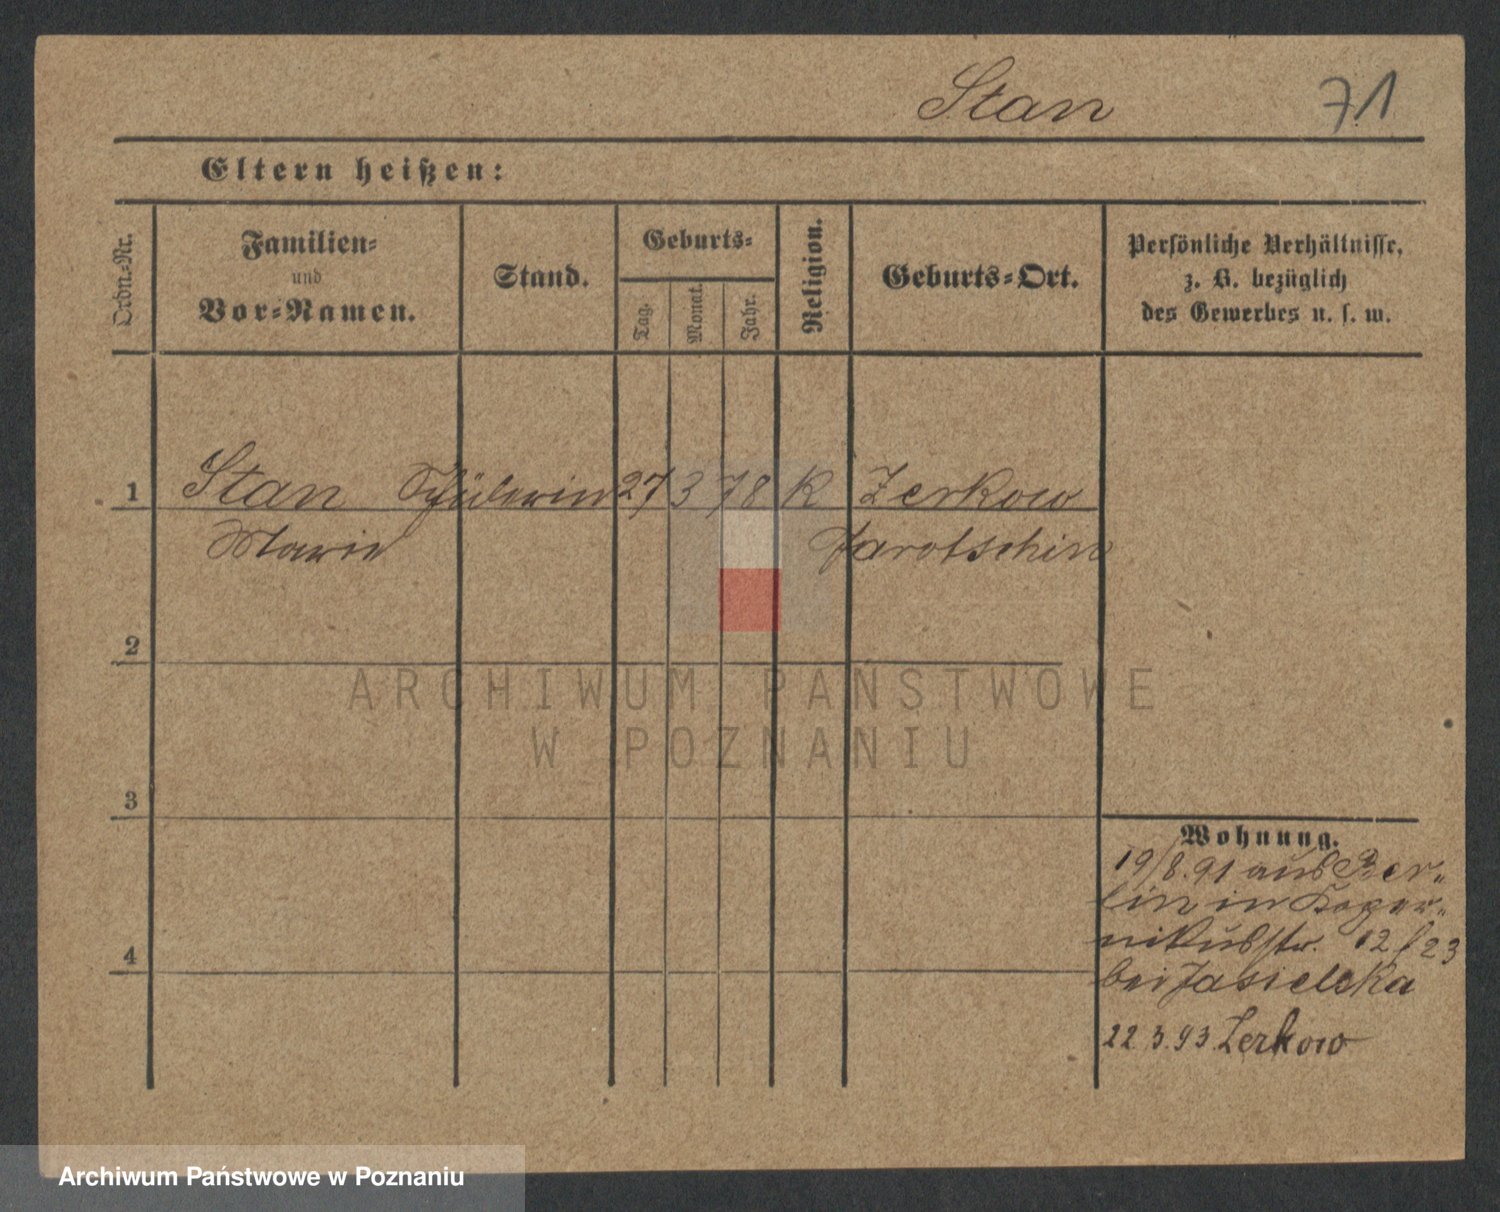 Stan 71
Eltern heißen:
Ordn.-Nr.
Familien-
und
Vor-Namen.
Stand.
Geburts-
Tag.
Monat.
Jahr.
Religion.
Geburts-Ort.
Persönliche Verhältnisse,
z. B. bezüglich
des Gewerbes u. s. w.
1 Stan Schülerin 27 3 78 K Zerkow
Marie Jarotschin
2
3
4
Wohnung.
19/8.91 aus Ber-
lin in Koper-
nikusstr. 12 f 23
bei Jasielska
22.3.93. Zerkow
ARCHIWUM PAŃSTWOWE
W POZNANIU
Archiwum Państwowe w Poznaniu